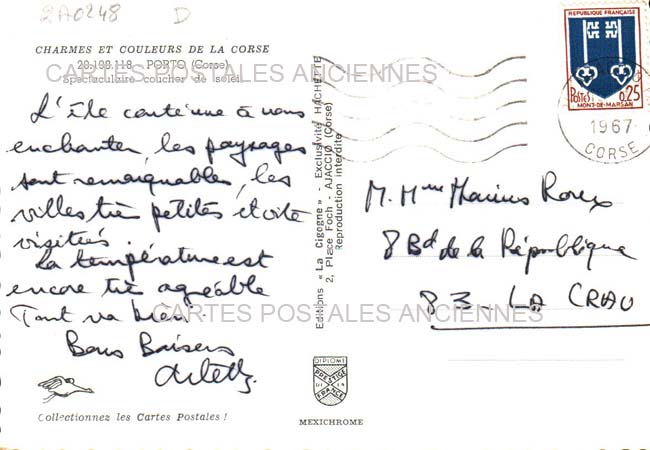 2A0248 D
CHARMES ET COULEURS DE LA CORSE
20.198.118 - PORTO (Corse)
Spectaculaire coucher de soleil
CARTES POSTALES ANCIENNES
L'île continue à nous
enchanter, les paysages
sont remarquables, les
villes très petites et vite
visitées.
La température est
encore très agréable
Tout va bien.
Bons Baisers
Collectionnez les Cartes Postales !
Editions « La Cigogne » - Exclusivité HACHETTE
2, Place Foch - AJACCIO (Corse)
Reproduction interdite
DIPLOME
PRESTIGE
DE LA
FRANCE
MEXICHROME
REPUBLIQUE FRANÇAISE
Postes 0,25
MONT-DE-MARSAN
1967
CORSE
M. Mme Marius Roux
8 Bd de la République
83 - LA CRAU
CARTES POSTALES ANCIENNES